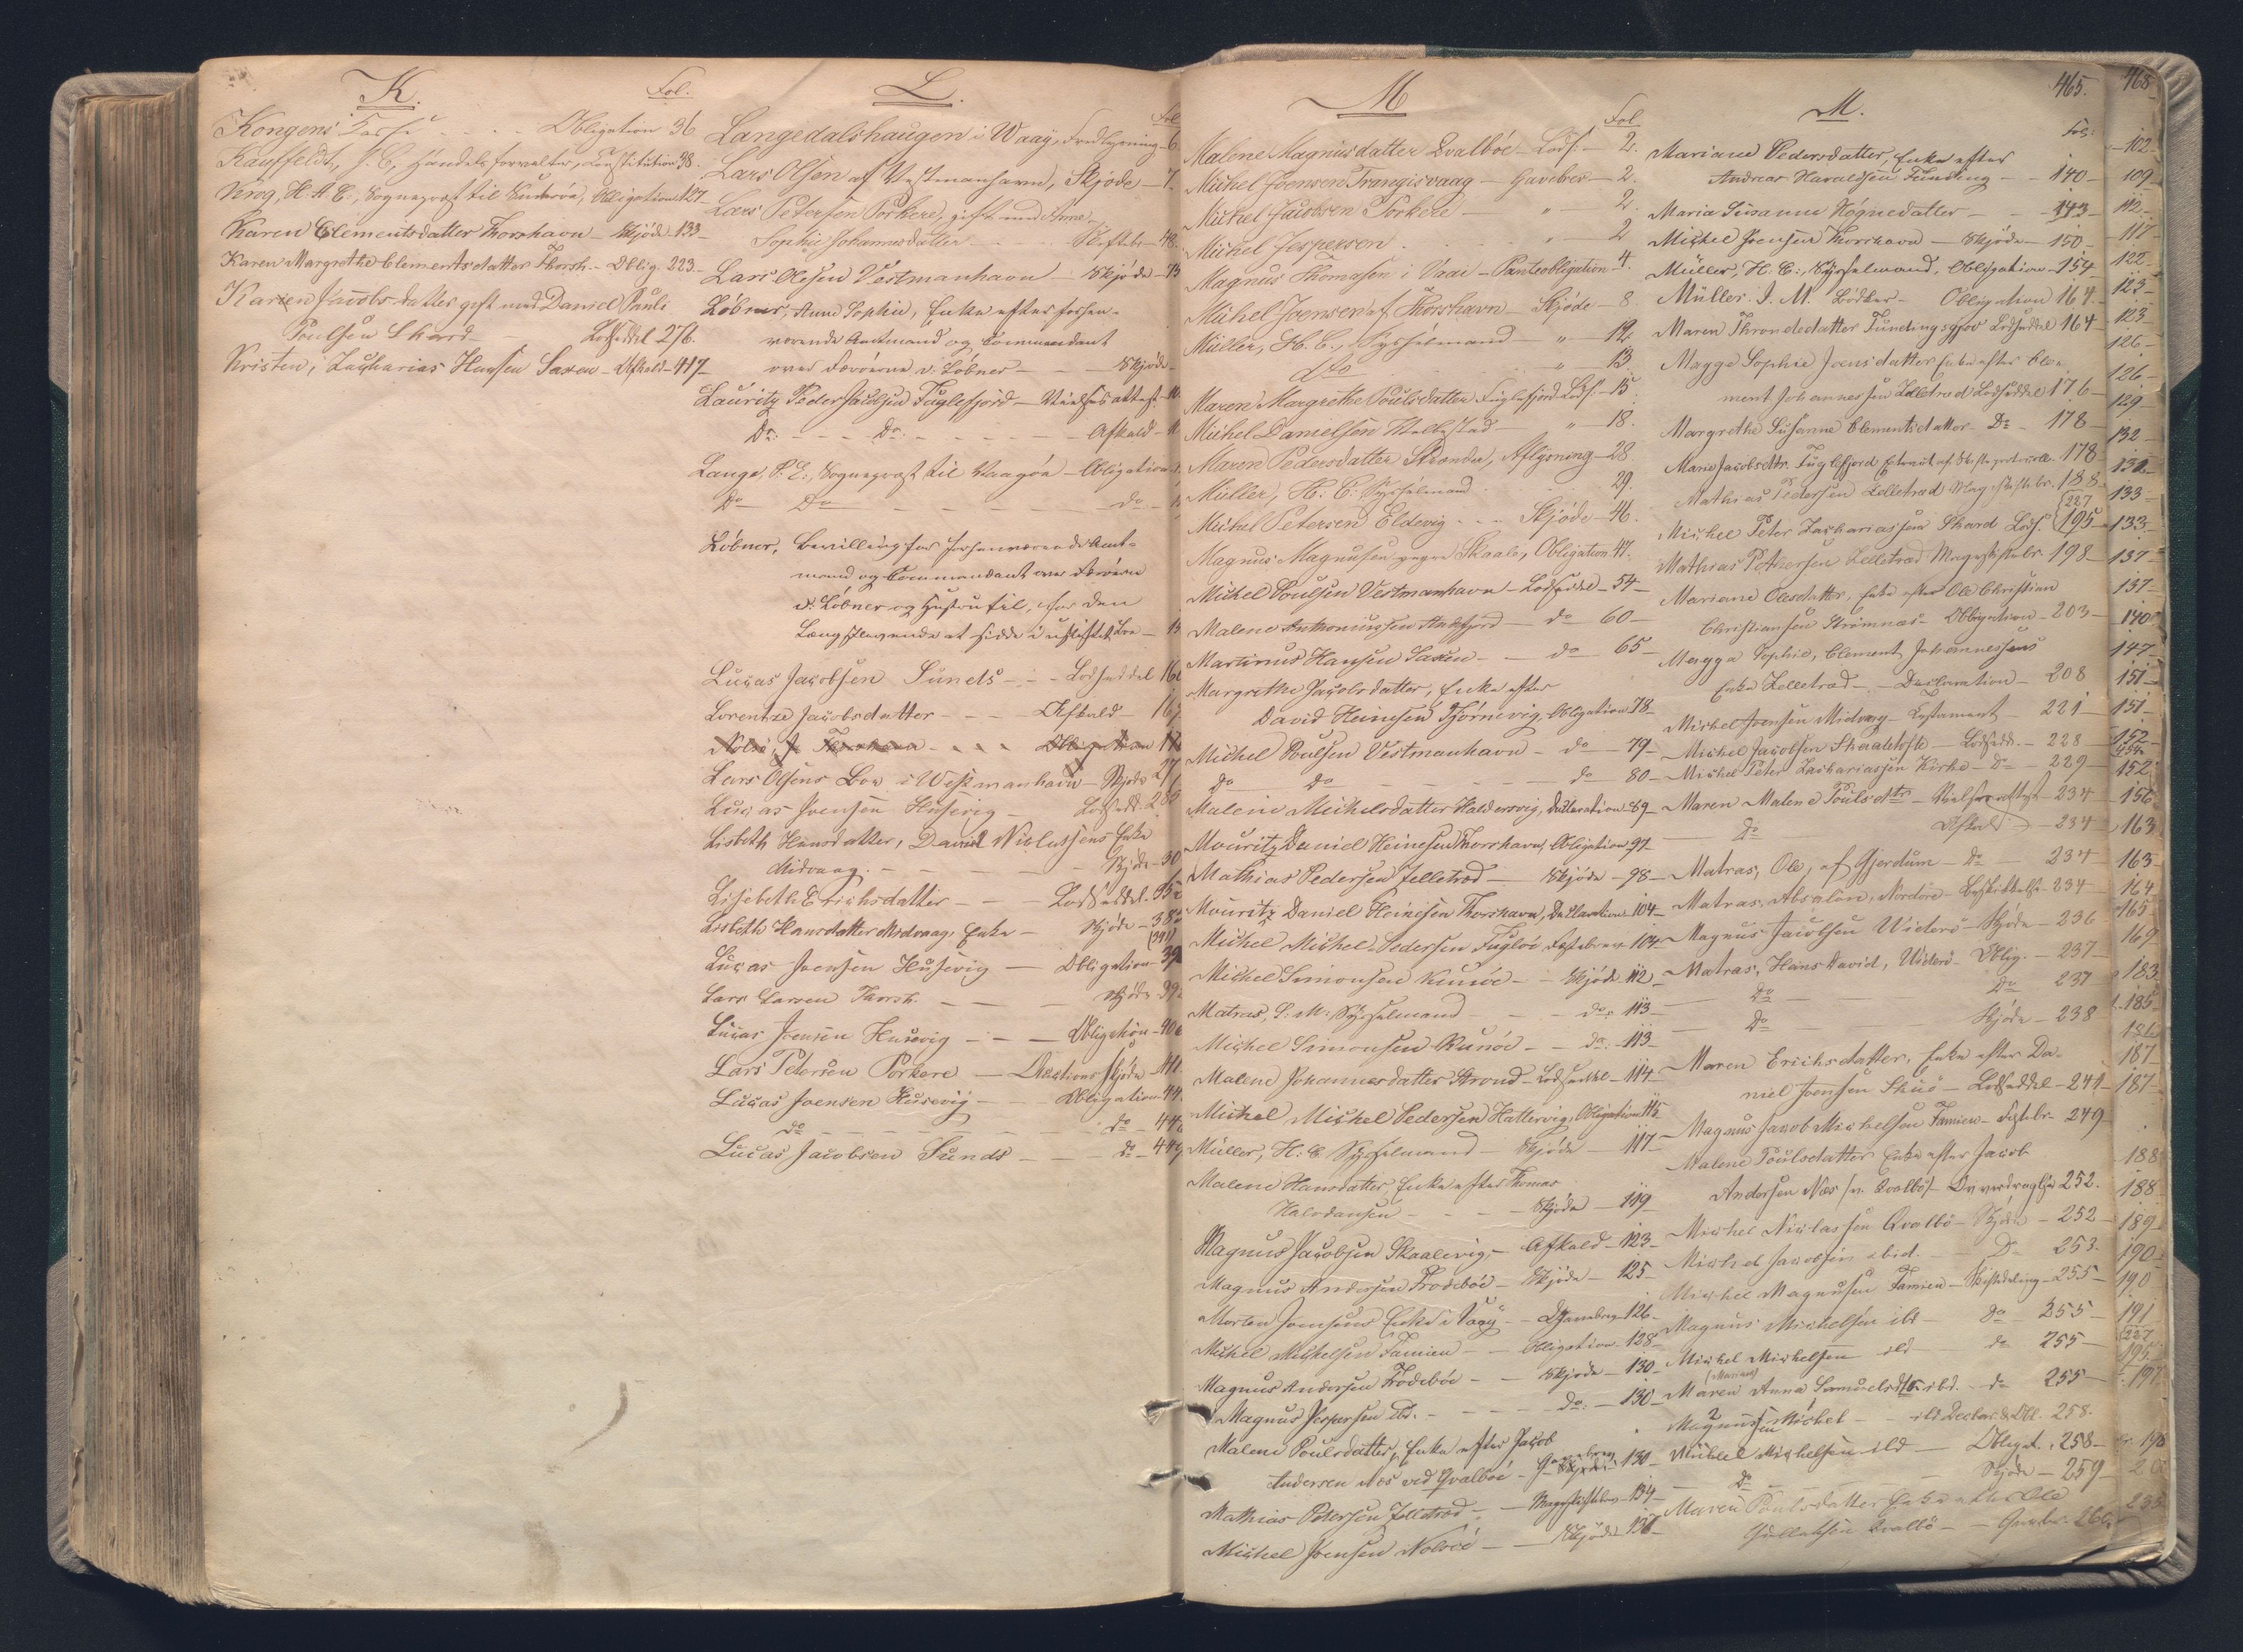 K.
Fol.
Kongens Casse - - - Obligation 36
Kauffeldt, J. C., Handelsforvalter, Constitution 38.
Krog, H. A. C., Sognepræst til Suderöe, Obligation 127-
Karen Clementsdatter Thorshavn - Skjöde - 133-
Karen Margrethe Clementsdatter Thorsh. - Oblig. 223.-
Karen Jacobsdatter gift med Daniel Pauli
Poulsen Skaard - Lodseddel 276.
Kristen, Zacharias Hansen Saxen - Afkald - 417-
L.
Fol
Langedalshaugen i Waay, Fredlysning - 6
Lars Olsen af Vestmanhavn, Skjøde - 7.
Lars Petersen Porkere, gift med Anne
Sophie Johannesdatter - - - Skiftebr - 48.
Lars Olesen Vestmanhavn - Skjöde - 73
Löbner, Anne Sophie, Enke efter forhen-
værende Amtmand og Commandant
over Færöerne v. Löbner - - - Skjöde -
Lauritz Peder Jacobsen Fuglefjord - Vielses attest -
Do. - - - Do. - - - - - Afkald -
Lange, P. E., Sognepræst til Vaagöe - Obligation
Do - Do - - - - - - do -
Löbner, Bevilling for forhenværende Amt-
mand og Commandant over Færöerne
v. Löbner og Hustru til, for den
Længstlevende at sidde i uskiftet Boe - 15
Lucas Jacobsen Sunds - - - Lodseddel 160
Lorentze Jacobsdatter - - - Afkald - 167
Nolsö, J. Thorshavn - - - Obligation 17
Lars Olsens Boe i Westmanhavn - Skjöde 27
Lucas Joensen Husevig - Lodsedd. 28
Lisbeth Hansdatter, David Niclassens Enke
Midvaag. - - - - - Skjöde - 30
Lisebeth Erichsdatter - - - Lodseddel. 35
Lisbeth Hansdatter Midvaag, Enke - Skjöde - 38
Lucas Joensen Husevig - Obligation - 39
Lars Larsen Thorsh. - - - Skjöde 39
Lucas Joensen Husevig - - - Obligation - 40
Lars Petersen Porkere - Auctions skjöde - 41
Lucas Joensen Husevig - - Obligation - 44
do - - - - - - do - 44
Lucas Jacobsen Sunds - - - do - 449
M
Fol
Malene Magnusdatter Qvalböe - Lods. - 2.
Michel Joensen Trangisvaag - Gavebrev - 2.
Michel Jacobsen Porkere - " - 2.
Michel Jespersen . . . . " - 2
Magnus Thomasen i Vaai - Panteobligation - 4.
Michel Joensen af Thorshavn - Skjöde - 8
Müller, H. C., Sysselmand - " - 12.
do . . . " 13
Maren Margrethe Poulsdatter Fuglefjord Lods. - 15
Michel Danielsen Velbestad - " - 18.
Maren Pedersdatter Strender, Aflysning - 28
Müller, H. C. Sysselmand . . . 29.
Michel Petersen Eldevig - - - Skjöde - 46.
Magnus Magnusen yngre Skaale, Obligation 47.
Michel Poulsen Vestmanhavn - Lodseddel - 54-
Malene Anthoniussen Andefjord - do - 60-
Martinus Hansen Saxen - - do - 65-
Margrethe Jacobsdatter, Enke efter
David Heinesen Tjörnevig, Obligation 78-
Michel Poulsen Vestmanhavn - do - 79-
do do - - - - do - 80-
Malene Michelsdatter Haldersvig, Declaration - 89-
Mouritz Daniel Heinesen Thorshavn, Obligation 97-
Mathias Pedersen Zelletræd - Skjöde - 98-
Mouritz Daniel Heinesen Thorshavn, Declaration - 104-
Michel Michel Pedersen Fuglöe, Festebrev - 104-
Michel Simonsen Kunöe - - Skjöde 112-
Matras, S. M. Sysselmand - - - do - 113-
Michel Simonsen Kunöe - - do - 113-
Malene Johannesdatter Strond - Lodseddel - 114-
Michel Michel Pedersen Hattervig, Obligation 115-
Müller, H. C. Sysselmand - Skjöde - 117-
Malene Hansdatter, Enke efter Thomas
Halvdansen - - - - Skjöde - 119-
Magnus Jacobsen Skaalevig - Afkald - 123-
Magnus Andersen Frodeböe - Skjöde - 125-
Morten Joensens Enke i Vaay - - 126-
Michel Michelsen Famien - - Obligation - 128-
Magnus Andersen Frodeböe - - Skjöde - 130-
Magnus Jespersen ibd. - - - do. - 130-
Malene Poulsdatter, Enke efter Jacob
Andersen Næs ved Qvalböe - Gavebrev 130-
Mathias Petersen Zelletræd - - Mageskiftebr. - 134-
Michel Joensen Nolsöe - - Skjöde 136-
M.
465.
Fol:
Mariane Pedersdatter, Enke efter
Andreas Haraldsen Funding - - 140-
Maria Susanne Högnedatter - - 143-
Michel Joensen Thorshavn - Skjöde - 150-
Müller, H. C., Sysselmand, Obligation - 154-
Müller J. M. Bödker - Obligation 164-
Maren Throndedatter Fundingsgjov Lodseddel 164-
Magge Sophie Joensdatter Enke efter Cle-
ment Johannessen Zelletræd Lodseddel 176-
Margrethe Susanne Clementsdatter - Do - 178-
Marie Jacobsdtr. Fuglefjord Extract af Skifteprotocoll. 178-
Mathias Pedersen Zelletræd Mageskiftebr. 188-
Michel Peter Zachariassen Skaard Lods. (227 195-
Mathias Pethersen Zelletræd Mageskiftebr. 198-
Mariane Olesdatter, Enke efter Ole Christian
Christiansen Strömnæs - Obligation - 203-
Magga Sophie, Clement Johannessens
Enke Zelletræd - - Declaration - 208
Michel Joensen Midvaag - Testament - 221-
Michel Jacobsen Skaaletofte - Lodsedd. - 228-
Michel Peter Zachariassen Kirke - Do - 229-
Maren Malene Poulsdtr - Vielsesattest - 234-
Do Afkald - 234-
Matras, Ole, af Gjerdum - Do - 234-
Matras, Absalon, Nordöre - Beskikkelse - 234-
Magnus Jacobsen Wideröe - Skjöde - 236
Matras, Hans David, Videröe - Oblig. - 237-
Do Do 237
Do Skjöde - 238
Maren Erichsdatter, Enke efter Da-
niel Joensen Skuö - Lodseddel - 241-
Magnus Jacob Michelsen Famien - Festebr. 249-
Malene Poulsdatter Enke efter Jacob
Andersen Næs (v. Qvalbö) - Overdragelse 252.
Michel Niclassen Qvalbö - Skjöde - 252-
Michel Jacobsen ibid. - Do - 253.
Michel Magnusen Famien - Skiftedeling - 255-
Magnus Michelsen ibd - do - 255-
Michel Michelsen ibd do 255-
(Mariane)
Maren Anna Samuelsdtr. ibd. - do 255-
Magnussen Michel - - ibd Declar. & Obl. 258.
Michel Michelsen ibd - Obligat. 258-
do - Skjöde - 259-
Maren Poulsdatter Enke efter Ole
Gullaksen Qvalbö - - Gavebr. 260.
468
102-
109-
112-
117-
122-
123-
123-
126-
126-
129-
132-
132-
133-
133-
137-
137-
140
147-
151-
151-
152-
152
156
163
163-
164
165-
169
183
185-
187
187-
188
188-
189-
190-
190
191
(227
195
197
198